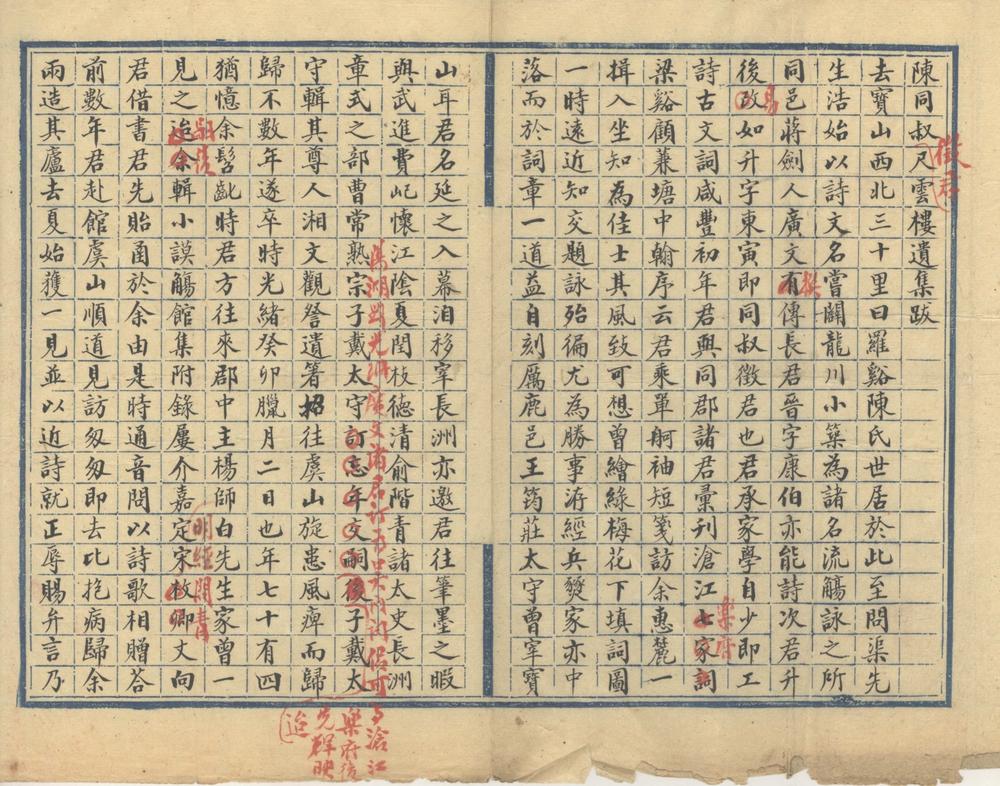 陳同叔尺雲樓遺集跋
去寶山西北三十里曰羅谿陳氏世居於此至問渠先
生浩始以詩文名嘗闢龍川小築為諸名流觴詠之所
同邑蔣劍人廣文有傳長君晉字康伯亦能詩次君升
後改如升字東寅即同叔徵君也君承家學自少即工
詩古文詞咸豐初年君與同郡諸君彙刊滄江七家詞
梁谿顧蒹塘中翰序云君乘單舸袖短箋訪余惠麓一
揖入坐知為佳士其風致可想曾繪綠梅花下填詞圖
一時遠近知交題詠殆徧尤為勝事洊經兵燹家亦中
落而於詞章一道益自刻厲鹿邑王筠莊太守曾宰寶
山耳君名延之入幕洎移宰長洲亦邀君往筆墨之暇
與武進費屺懷江陰夏閏枝德清俞階青諸太史長洲
章式之部曹常熟宗子戴太守訂忘年交嗣後子戴太
守輯其尊人湘文觀詧遺箸招往虞山旋患風痺而歸
歸不數年遂卒時光緒癸卯臘月二日也年七十有四
猶憶余髫齔時君方往來郡中主楊師白先生家曾一
見之迨余輯小謨觴館集附錄屢介嘉定宋枚卿丈向
君借書君先貽圅於余由是時通音問以詩歌相贈答
前數年君赴館虞山順道見訪匆匆即去比抱病歸余
雨造其廬去夏始獲一見並以近詩就正辱賜弁言乃
徵君
易
撰
樂府
嗣後
明經閏青
與滄江
樂府後
先輝映
迨